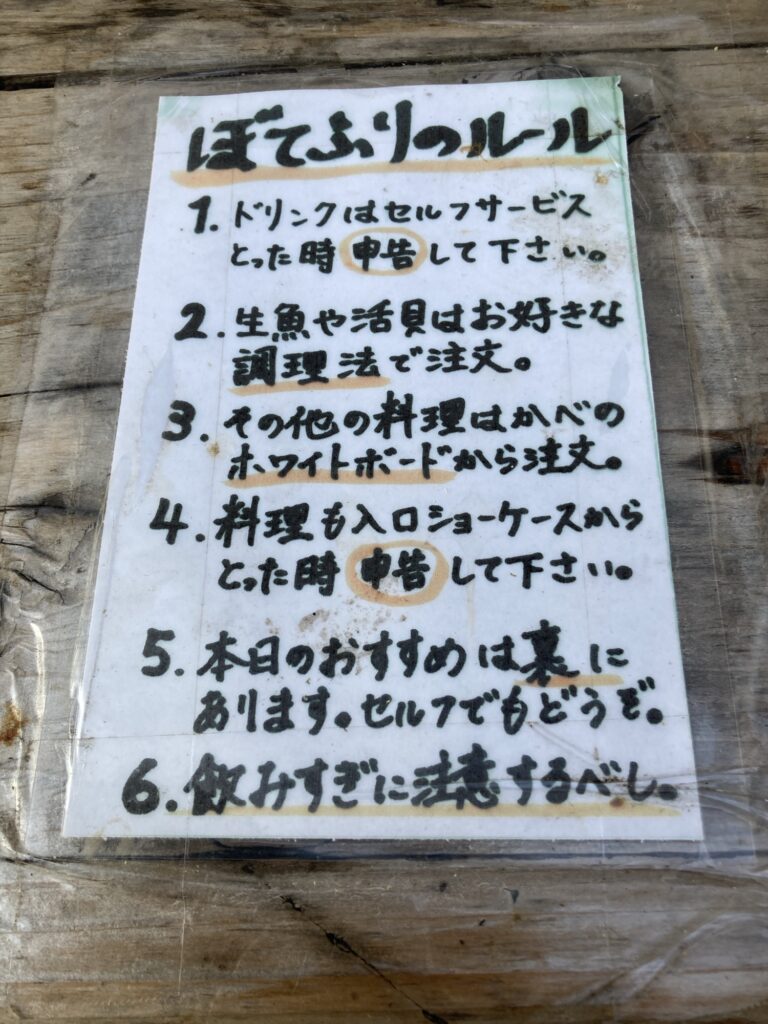 ぼてふりのルール
1. ドリンクはセルフサービス
とった時 申告 して下さい。
2. 生魚や活貝はお好きな
調理法で注文。
3. その他の料理はかべの
ホワイトボードから注文。
4. 料理も入口ショーケースから
とった時 申告 して下さい。
5. 本日のおすすめは裏に
あります。セルフでもどうぞ。
6. 飲みすぎに注意するべし。